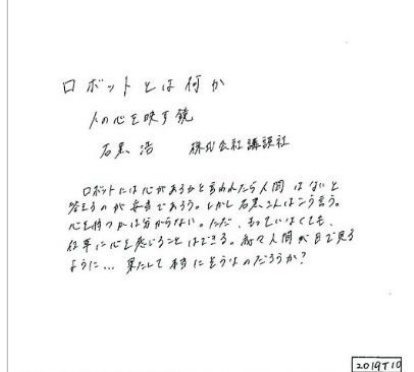 ロボットとは何か
人の心を映す鏡
石黒浩 株式会社講談社
ロボットには心があるかと言われたら人間はないと
答えるのが妥当であろう。しかし石黒さんはこう言う。
心を持つかは分からない。ただ、もっていなくても、
仕草に心を感じることはできる。我々人間が目で見る
ように... 果たして本当にそうなのだろうか?
2019T10